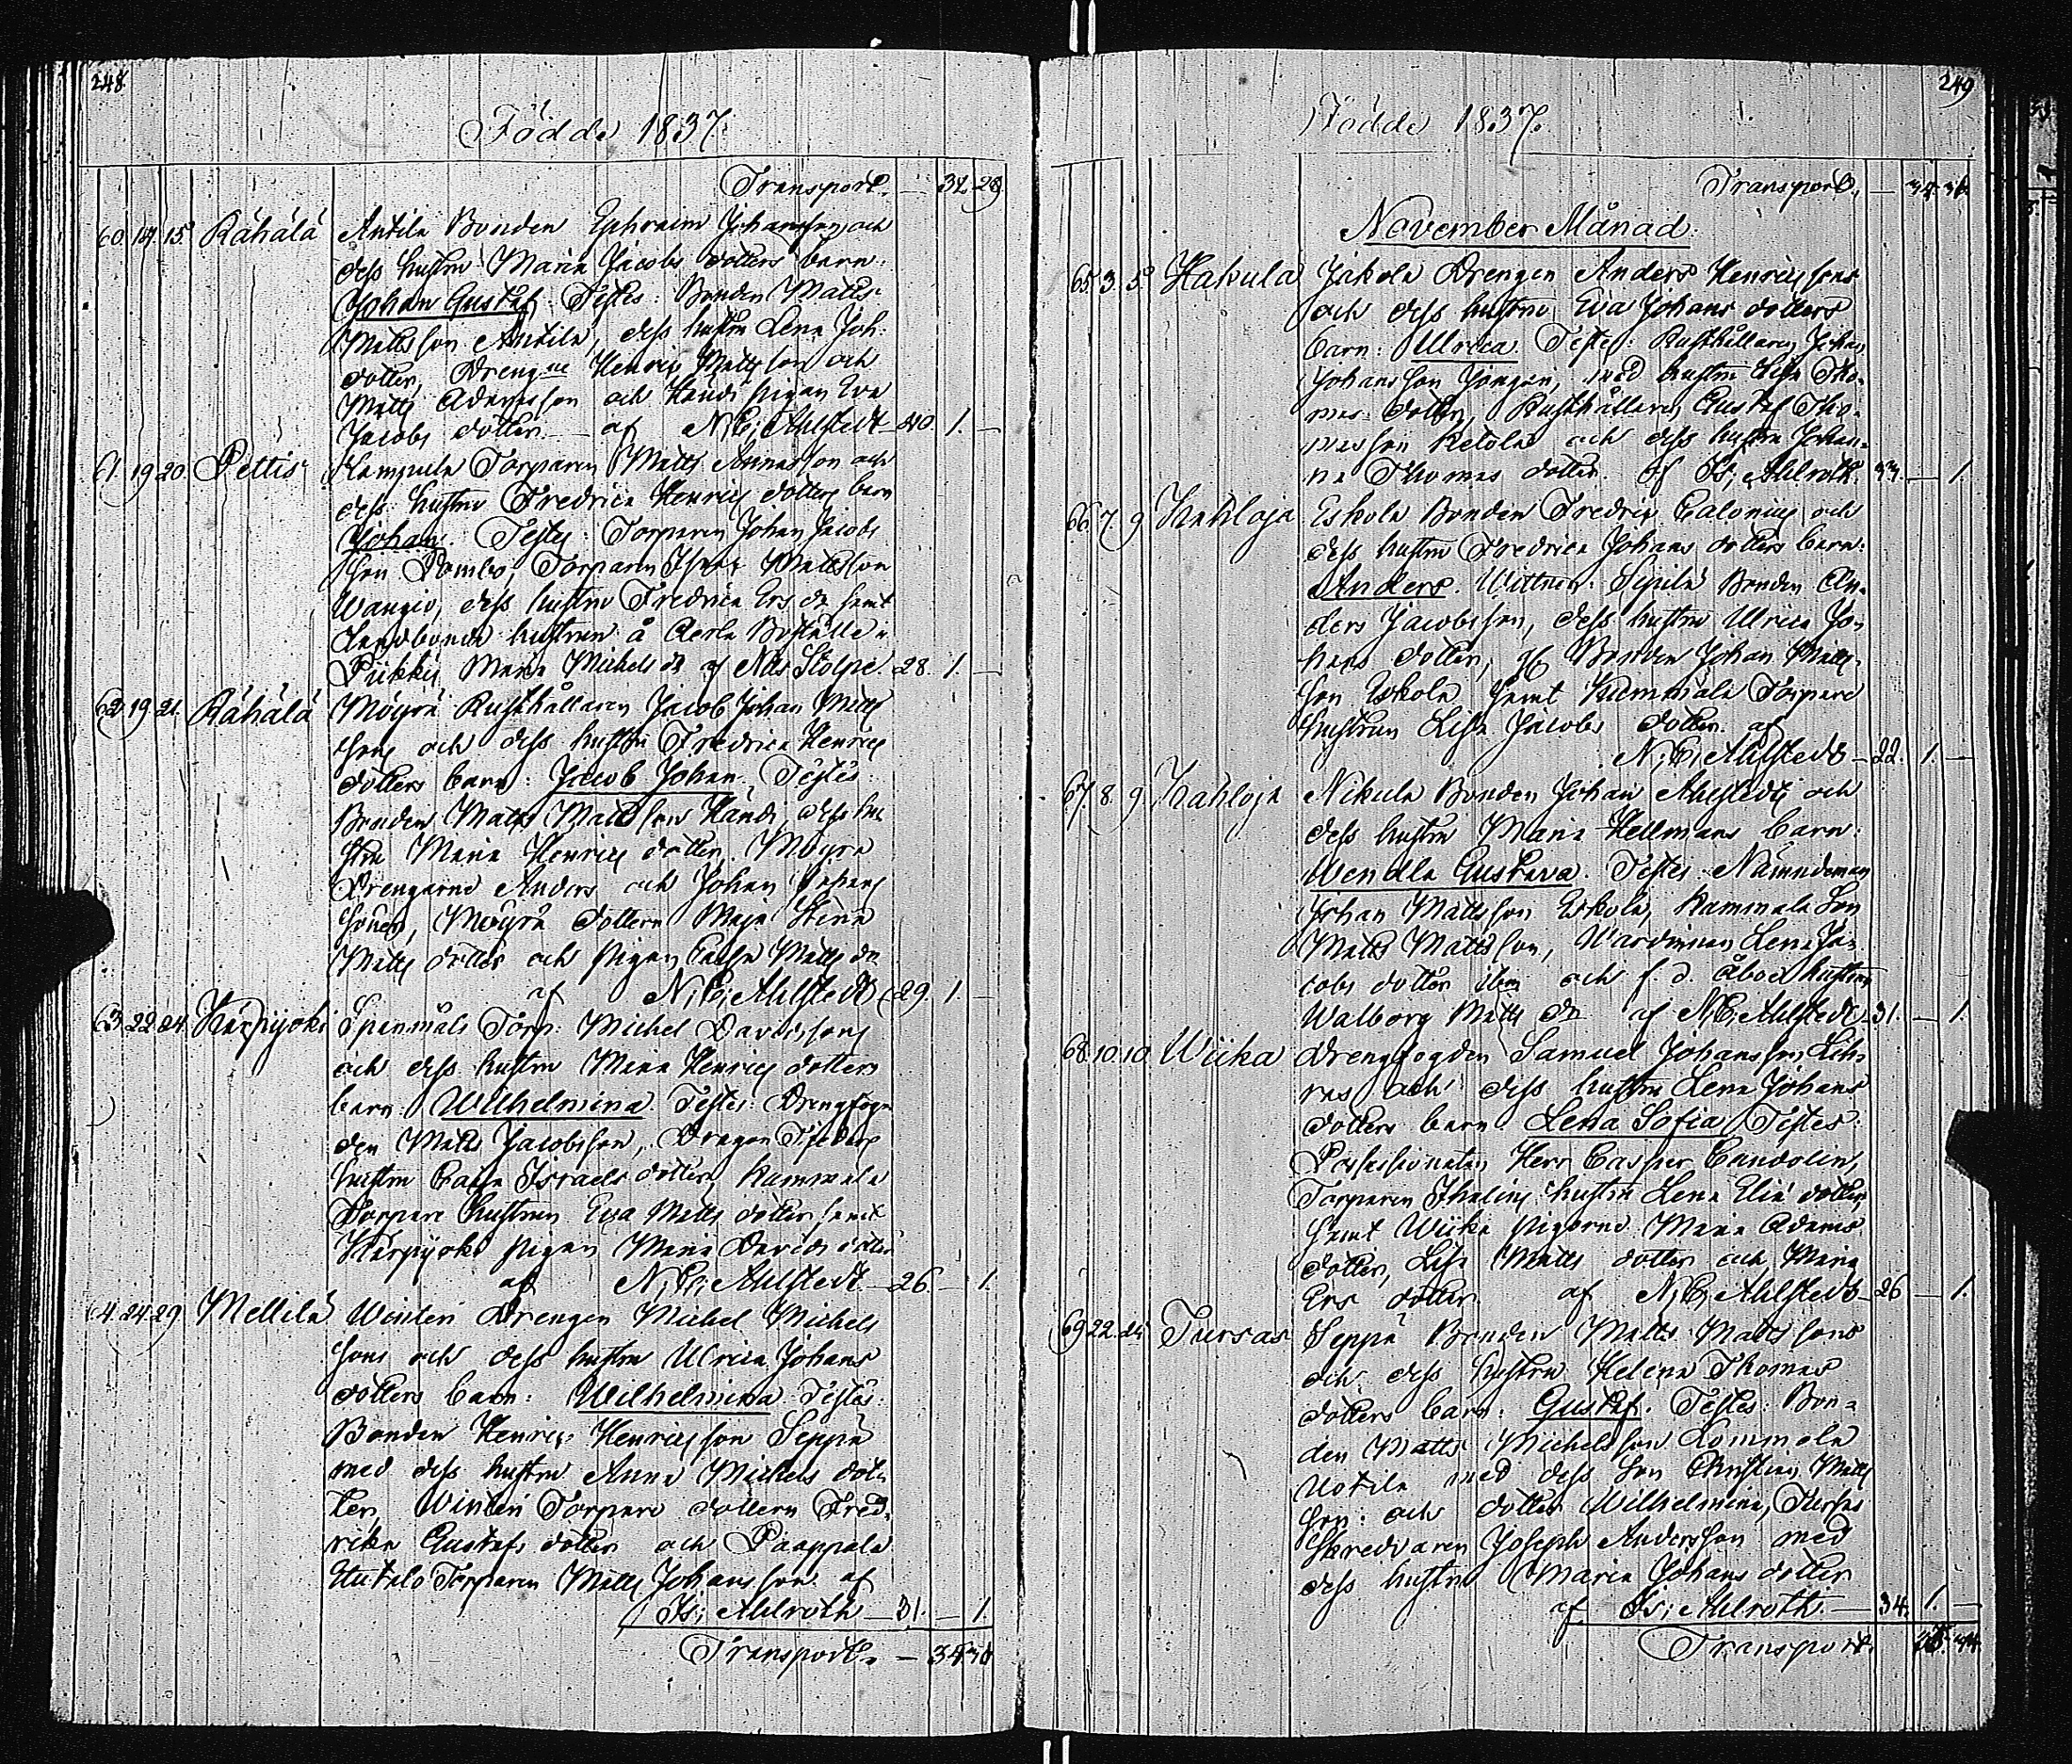 248
Födde 1837.
Transport. — 32. 28
60. 14. 15. Rähälä Antila Bonden Ephraim Johansson och
dess hustru Maria Jacobs dotters barn:
Johan Gustaf. Testes: Bonden Matts
Mattsson Antila, dess hustru Lena Joh:
dotter, Drengne Henric Mattsson och
Matts Adamsson och Handi pigan Eva
Jacobs dotter — af N: C: Ahlstedt — 40. 1. —
61. 19. 20. Pettis Torparen Matts Annasson och
dess hustru Fredrica Henrics dotters barn
Johan. Testes: Torparen Johan Jacobs
son Torparen Mattsson
dess hustru Fredrica Ers dr samt
Landbonde hustrun å Aerla Boställe i
Piikkis Maria Michels dr af Nils Stolpe. 28. 1. —
62. 19. 21. Rähälä Möyrä Rusthållaren Jacob Johan Matts
sons och dess hustru Fredrica Henrics
dotters barn: Jacob Johan. Testes:
Bonden Matts Mattsson Handi, dess hu
stru Maria Henrics dotter, Möyrä
Drengarne Anders och Johan
söner, Möyrä dottern Maja Stina
Matts dotter och pigan Caisa Matts dr
af N: C: Ahlstedt 29. 1. —
63. 22. 24. Karpijoki Spanmåls Torp: Michel Davidssons
och dess hustru Maria Henrics dotters
barn: Wilhelmina. Testes: Drengfog
den Matts Jacobsson, Dragon
hustru Caisa Israels dotter, Kammala
Torpare hustrun Eva Matts dotter samt
Karpijoki pigan Maria Davids dotter
af N: C: Ahlstedt — 26. — 1.
4. 24. 29. Mellilä Winteri Drengen Michel Michels
sons och dess hustru Ulrica Johans
dotters barn: Wilhelmina Testes:
Bonden Henric Henricsson Seppä
med dess hustru Anna Michels dot-
ter, Winteri Torpare dottern Fred-
rika Gustafs dotter och Paappala
Torparen Matts Johansson af
Is: Ahlroth — 31. — 1.
Transport. — 34. 30
249
Födde 1837.
Transport. — 34. 30
November Månad.
65. 3. 5. Hakula Jakola Drengen Anders Henricssons
och dess hustru Eva Johans dotters
barn: Ulrica. Testes: Rusthållaren Johan
Johansson med hustru Lisa Tho-
mas dotter, Rusthållaren Gustaf Tho-
masson Ketola och dess hustru Johan-
na Thomas dotter. af Is: Ahlroth. 33. — 1.
66. 7. 9. Kahloja Eskola Bonden Fredric Calonius och
dess hustru Fredrica Johans dotters barn:
Anders. Wittnen: Sipilä Bonden An-
ders Jacobsson, dess hustru Ulrica Jo-
hans dotter, Bonden Johan Matts-
son Eskola samt Kummala Torpare
hustrun Lisa Jacobs dotter. af
N: C: Ahlstedt — 22. 1. —
67. 8. 9. Kahloja Nikula Bonden Johan Ahlstedts och
dess hustru Maria Hellmans barn:
Wendla Gustava. Testes Nämndeman
Johan Mattsson Eskola, Kammala Son
Matts Mattsson, Wärdinnan Lena Ja-
cobs dotter och f. d. Åboe hustrun
Walborg Matts dr af N: C: Ahlstedt — 31. — 1.
68. 10. 10. Wiika Drengfogden Samuel Johansson
och dess hustru Lena Johans
dotters barn Lena Sofia Testes:
Possessionaten Herr Casper Candolin,
Torparen hustru Lena Eliæ dotter,
samt Wiika pigorne Maria Adams
dotter, Lisa Matts dotter och Maria
Ers dotter. af N: C: Ahlstedt — 26 — 1.
69. 22. Tursas Seppä Bonden Matts Mattssons
och dess hustru Helena Thomas
dotters barn: Gustaf. Testes: Bon-
den Matts Michelsson Lammela
Uotila med dess son Christian Matts
son och dotter Wilhelmina, Tursas
Skreddaren Joseph Andersson med
dess hustru Maria Johans dotter
af Is: Ahlroth. — 34. 1. —
Transport.